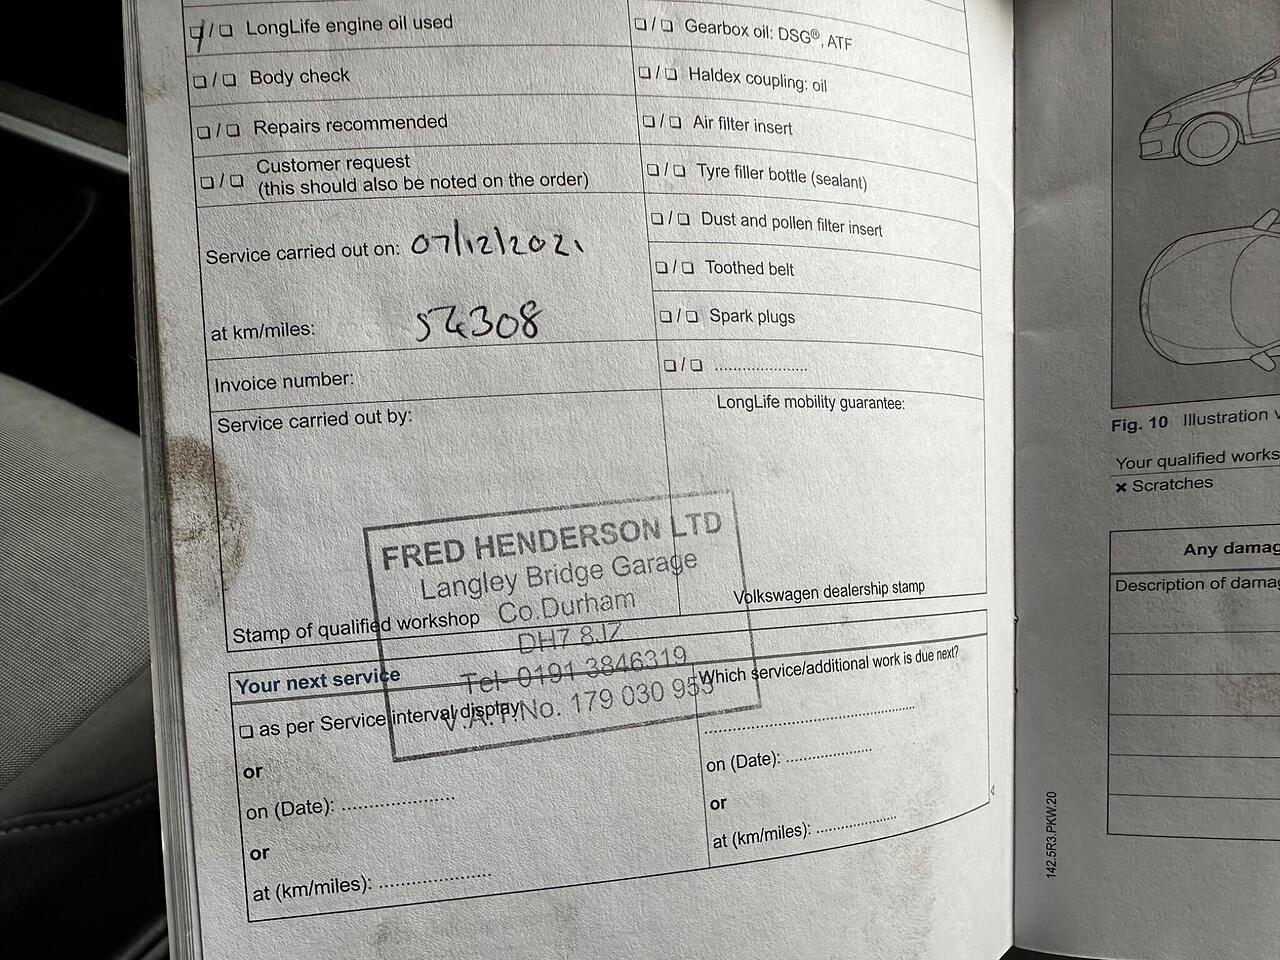 LongLife engine oil used
Body check
Repairs recommended
Customer request
(this should also be noted on the order)
Service carried out on: 07/12/2021
at km/miles: 54308
Invoice number:
Service carried out by:
Stamp of qualified workshop
Gearbox oil: DSG®, ATF
Haldex coupling: oil
Air filter insert
Tyre filler bottle (sealant)
Dust and pollen filter insert
Toothed belt
Spark plugs
/ .....................
LongLife mobility guarantee:
Volkswagen dealership stamp
FRED HENDERSON LTD
Langley Bridge Garage
Co.Durham
DH7 8JZ
Tel- 0191 3846319
V.A.T. No. 179 030 955
Your next service
as per Service interval display
or
on (Date): ......................
or
at (km/miles): ......................
Which service/additional work is due next?
on (Date): .................
or
at (km/miles): ................
142.5R3.PKW.20
Fig. 10 Illustration
Your qualified works
× Scratches
Any damag
Description of damag